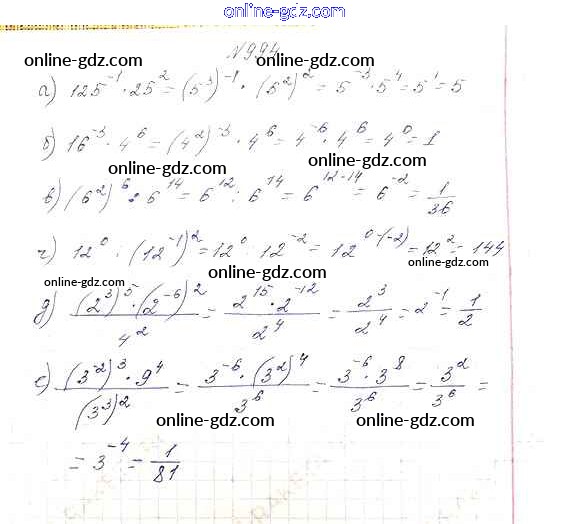 online-gdz.com
№994
online-gdz.com online-gdz.com
а) 125⁻¹ · 25² = (5³)⁻¹ · (5²)² = 5⁻³ · 5⁴ = 5¹ = 5
online-gdz.com
б) 16⁻³ · 4⁶ = (4²)⁻³ · 4⁶ = 4⁻⁶ · 4⁶ = 4⁰ = 1
online-gdz.com online-gdz.com
в) (6²)⁶ : 6¹⁴ = 6¹² : 6¹⁴ = 6¹²⁻¹⁴ = 6⁻² = 1/36
online-gdz.com
г) 12⁰ : (12⁻¹)² = 12⁰ : 12⁻² = 12⁰⁻⁽⁻²⁾ = 12² = 144
online-gdz.com online-gdz.com online-gdz.com
д) (2³)⁵ · (2⁻⁶)² / 4² = 2¹⁵ · 2⁻¹² / 2⁴ = 2³ / 2⁴ = 2⁻¹ = 1/2
online-gdz.com online-gdz.com
е) (3⁻²)³ · 9⁴ / (3³)² = 3⁻⁶ · (3²)⁴ / 3⁶ = 3⁻⁶ · 3⁸ / 3⁶ = 3² / 3⁶ =
online-gdz.com online-gdz.com
= 3⁻⁴ = 1/81